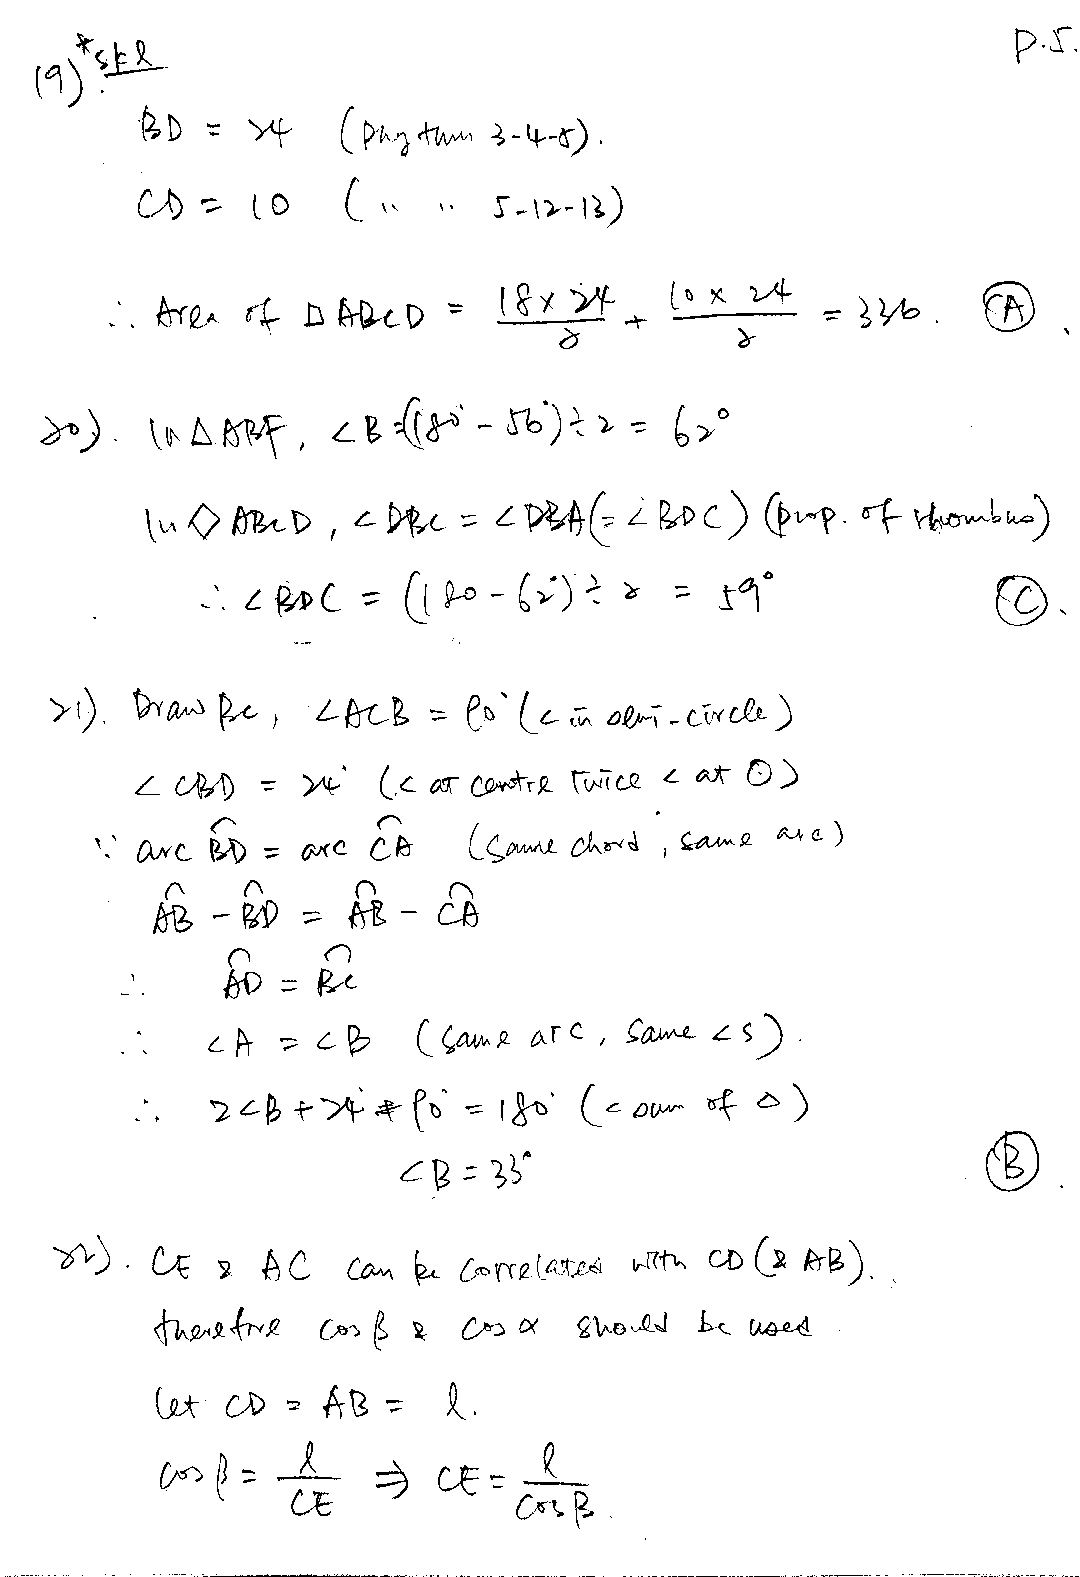 P.5.
19) *Skl
BD = 24 (Phythm 3-4-5).
CD = 10 ( " " 5-12-13)
∴ Area of ▱ ABCD = 18 × 24 / 2 + 10 × 24 / 2 = 336. (A).
20). In △ ABF, ∠B = (180° - 56°) ÷ 2 = 62°
In ◇ ABCD, ∠DBC = ∠DBA (= ∠BDC) (prop. of rhombus)
∴ ∠BDC = (180 - 62°) ÷ 2 = 59° (C).
21). Draw BC, ∠ACB = 90° (∠ in semi-circle)
∠CBD = 24° (∠ at centre twice ∠ at ⊙)
∵ arc B͡D = arc C͡A (same chord, same arc)
A͡B - B͡D = A͡B - C͡A
∴ A͡D = B͡C
∴ ∠A = ∠B (same arc, same ∠s).
∴ 2∠B + 24° + 90° = 180° (∠ sum of △)
∠B = 33° (B).
22). CE & AC can be correlated with CD (& AB).
therefore cos β & cos α should be used.
let CD = AB = l.
cos β = l / CE ⇒ CE = l / cos β.